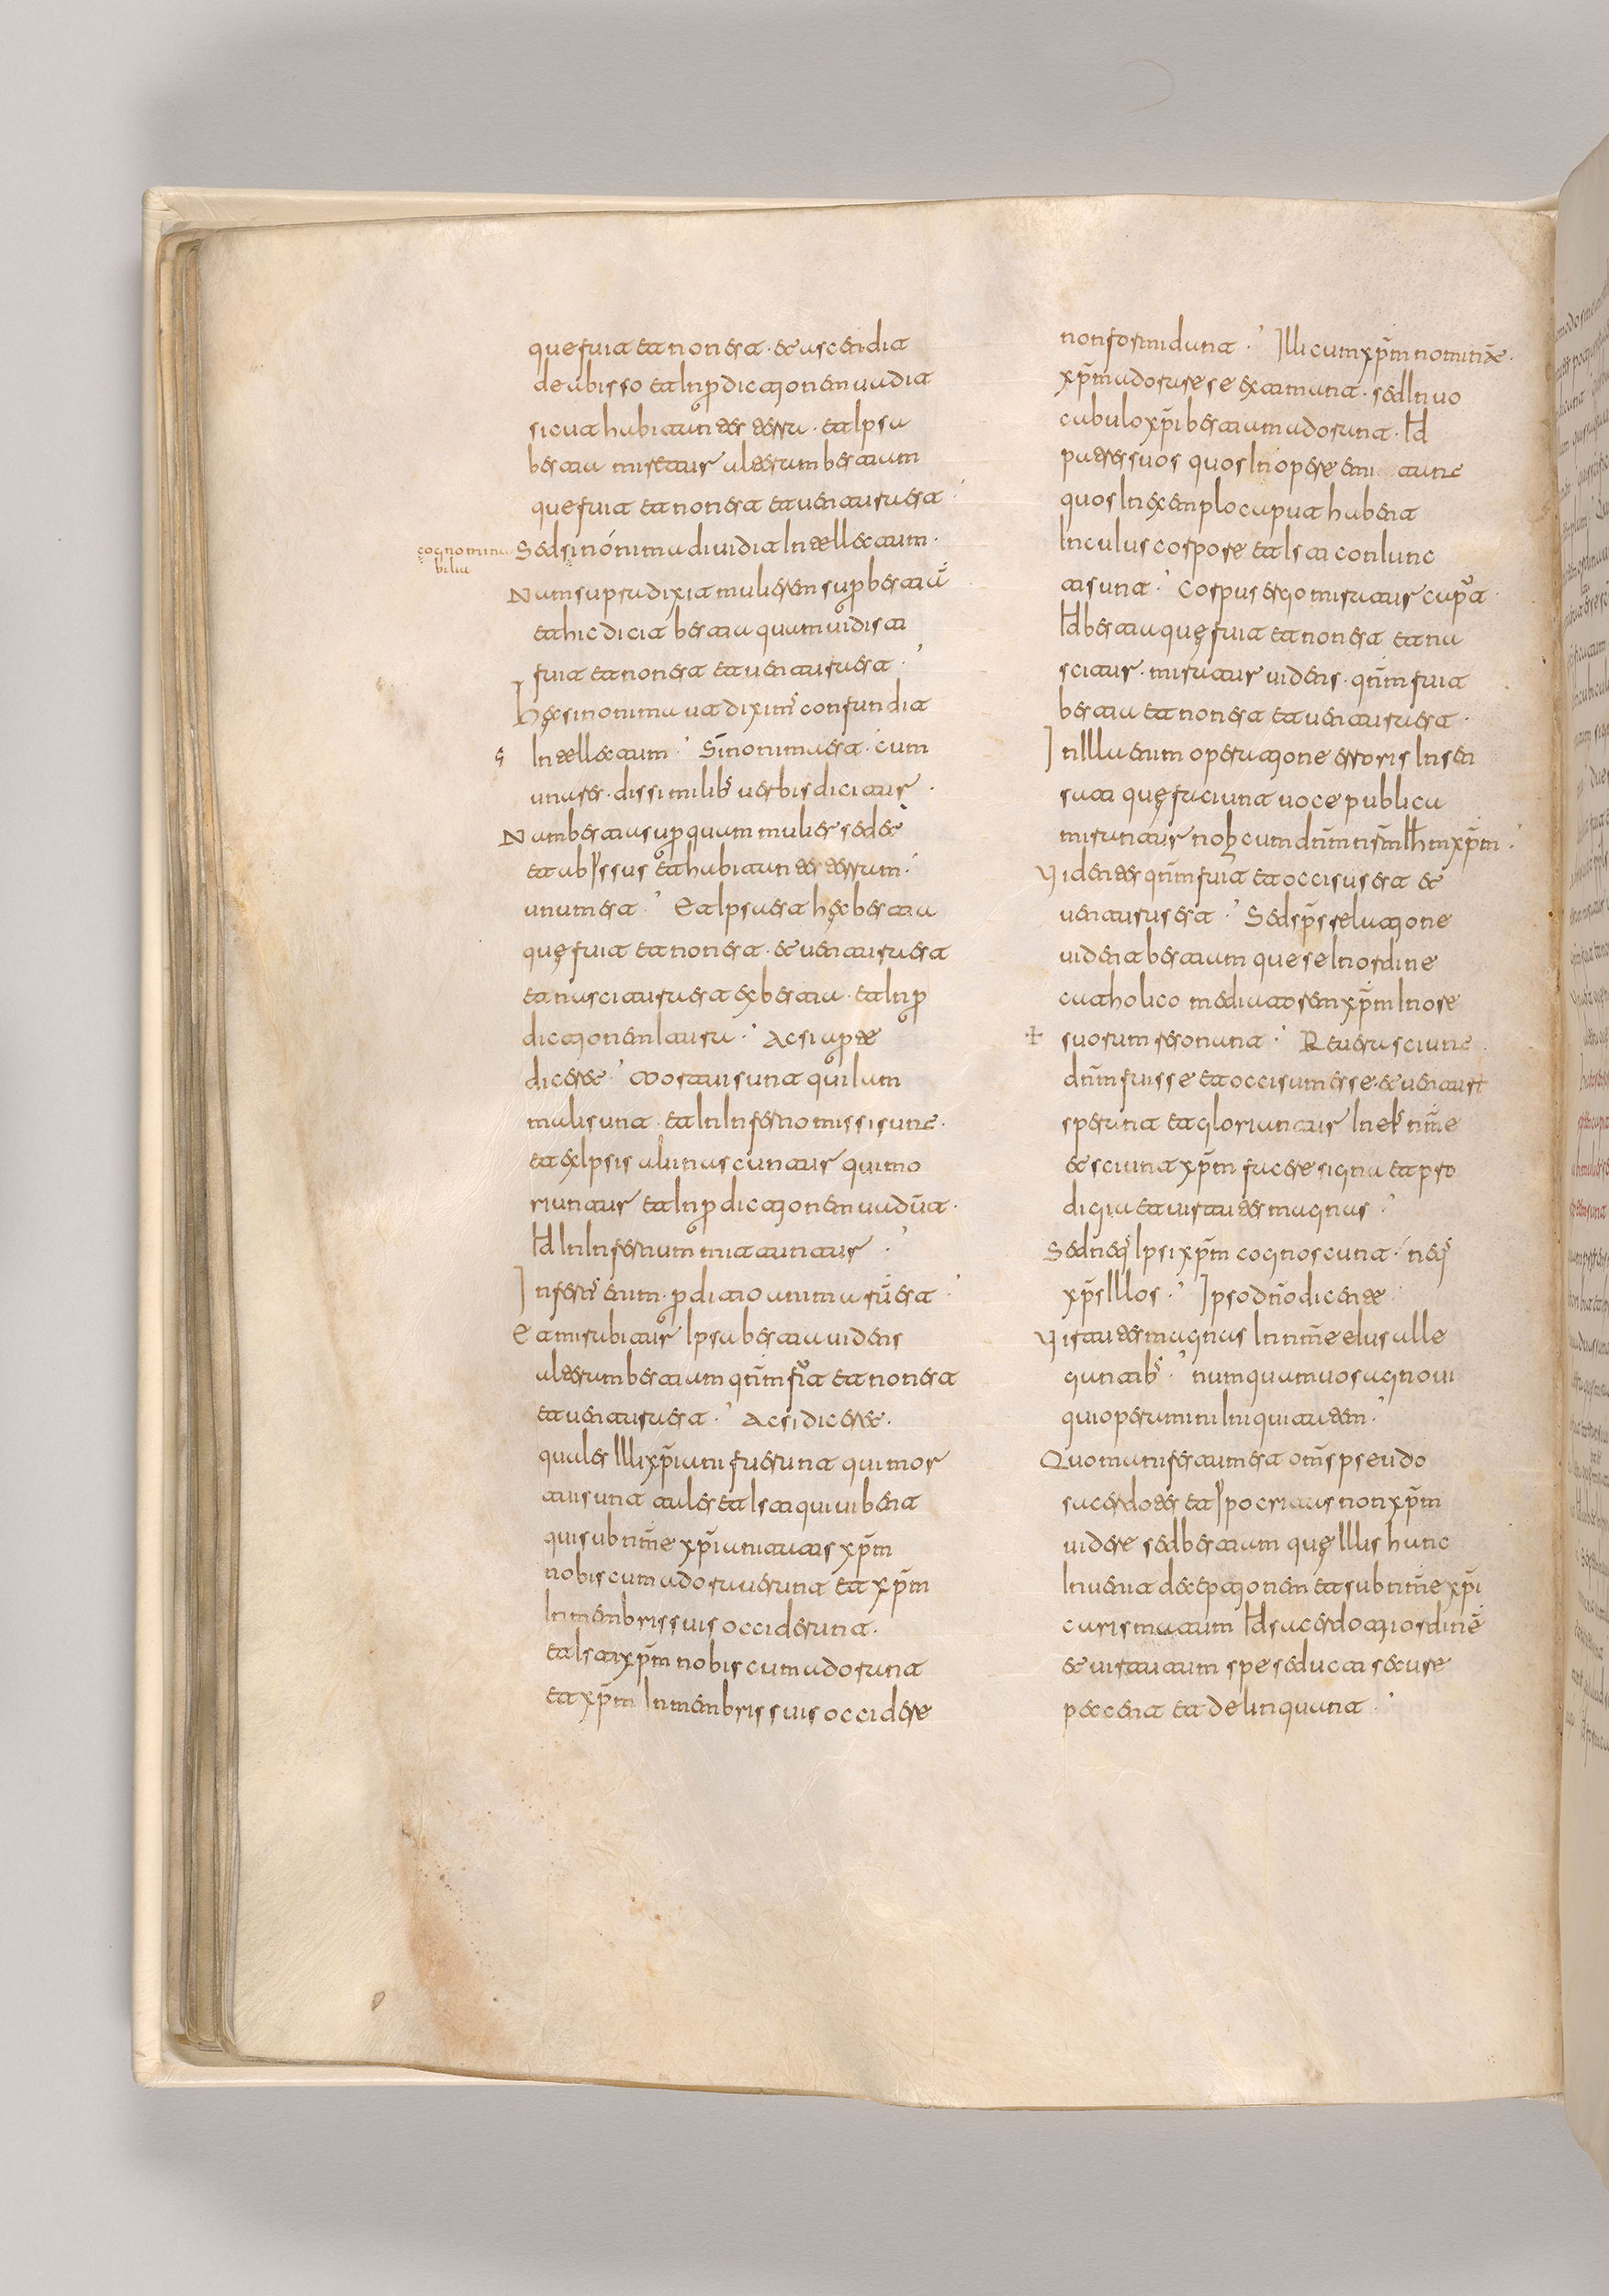 que fuit et non est · et ascendit
de abisso et in p̄dictionem uadit
sicut habitantes terra · et ipsa
bestia miratur alteram bestiam
que fuit et non est et uentura est ·
cognomina
bilia
Sed sinonima diuidit intellectum ·
Nam supra dixit mulierem sup̄ bestiā
et hic dicit bestia quam uidisti
fuit et non est et uentura est ·
Hęc sinonima ut diximꝰ confundit
intellectum · Sinonima est · cum
una res · dissimilibꝰ uerbis dicitur ·
Nam bestia sup̄ quam mulier sedet
et abyssus et habitantes terram ·
unum est · Et ipsa est hęc bestia
quę fuit et non est · et uentura est
et nascitura est ex bestia · et in p̄
dictionem itura · Ac si ap̄te
diceret · Mortui sunt qui iam
mali sunt · et in inferno missi sunt ·
et ex ipsis alii nascuntur qui mo
riuntur et in p̄dictionem uadūt ·
Id in infernum mittuntur ·
Infernꝰ enim · p̄ditio animarū est
Et mirabitur ipsa bestia uidens
alteram bestiam qnm̄ fuit et non est
et uentura est · Ac si diceret ·
quales illi xp̄iani fuerunt qui mor
tui sunt tales et isti qui uibent
qui sub nm̄e xp̄ianitatis xp̄m
nobiscum adorauerunt et xp̄m
in menbris suis occiderunt ·
et isti xp̄m nobiscum adorant
et xp̄m in menbris suis occidere
non formidant · Illi cum xp̄m nominēt ·
xp̄m adorare se extimant · sed in uo
cabulo xp̄i bestiam adorant · Id
patres suos quos in opere imitantur
quos in exemplo caput habent
in cuius corpore et isti coniunc
ti sunt · Corpus ergo miratur caput ·
Id bestia quę fuit et non est et na
scitur · miratur uidens · qnm̄ fuit
bestia et non est et uentura est ·
In illa enim operatione erroris insen
sati quę faciunt uoce publica
mirantur nobcum dnm̄ nsm̄ Ihm xp̄m ·
Videntes qnm̄ fuit et occisus est et
uenturus est · Sed sp̄s reluatione
uident bestiam que se in ordine
catholico mediatorem xp̄m in ore
suorum resonant · Re uera sciunt
dnm̄ fuisse et occisum esse · et uentur
sperant et gloriantur in eiꝰ nm̄e
et sciunt xp̄m facere signa et pro
digia et uirtutes magnas ·
Sed neqꝫ ipsi xp̄m cognoscunt · neqꝫ
xp̄s illos · Ipso dn̄o dicente
Virtutes magnas in nm̄e eius alle
gantibꝰ · numquam uos agnoui
qui operamini iniquitatem ·
Quo manifestum est om̄s pseudo
sacerdotes et ypocritas non xp̄m
uidere sed bestiam quę illis hanc
inuenit deceptionem et sub nm̄e xp̄i
carismatum Id sacerdotii ordinē
et uirtutum spe seducti secure
peccent et delinquant ·